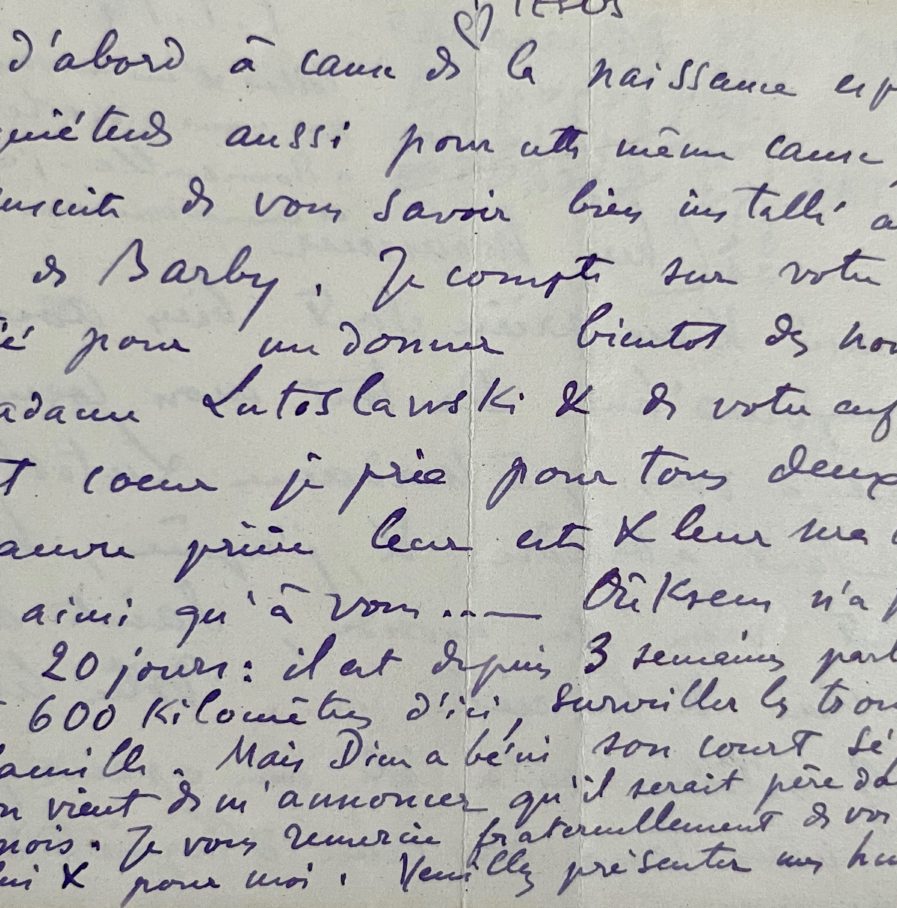 JESUS
d'abord à cause de la naissance esp
quiétude aussi pour cette même cause,
de vous savoir bien installé à
de Barby. Je compte sur votre
té pour me donner bientot des nou
adame Lutoslawski & de votre enf
t coeur je prie pour tous deux
auvre prière leur est & leur sera
ainsi qu'à vous..... n'a p
20 jours: il est depuis 3 semaines parti
600 Kilomètres d'ici, surveiller les trou
amille. Mais Dieu a béni son court sé
on vient de m'annoncer qu'il serait père da
mois. Je vous remercie fraternellement de vos
lui & pour moi. Veuillez présenter mes hu